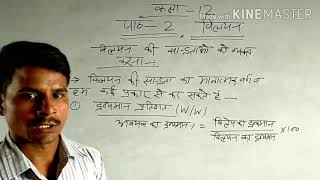 कक्षा - 12
Made with
KINEMASTER
पाठ - 2 विलयन
विलयन की सान्द्रताओं को व्यक्त
करना -
→ विलयन की सान्द्रता का मात्रात्मक वर्णन
हम कई प्रकार से कर सकते हैं -
① द्रव्यमान प्रतिशत (W/W)
अवयव का द्रव्यमान % = विलेय का द्रव्यमान
विलयन का द्रव्यमान × 100